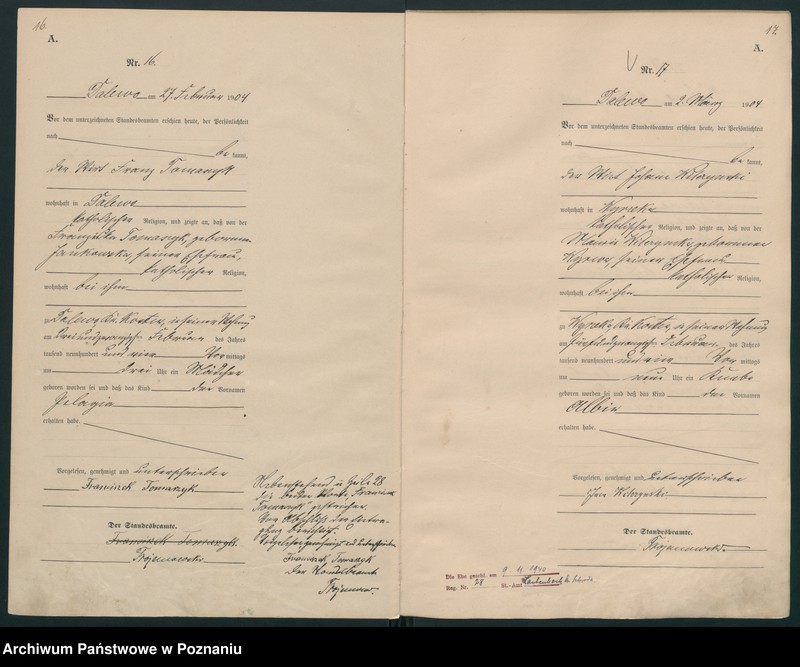 16.
A.
Nr. 16.
Dalewo am 27. Februar 1904
Vor dem unterzeichneten Standesbeamten erschien heute, der Persönlichkeit
nach
be kannt,
den Wirt Franz Tomaszyk
wohnhaft in Dalewo
katholischer Religion, und zeigte an, daß von der
Franziska Tomaszyk, geborenen
Jankowska, seiner Ehefrau,
katholischer Religion,
wohnhaft bei ihm
zu Dalewo Kr. Kosten, in seiner Wohnung
am dreiundzwanzigsten Februar des Jahres
tausend neunhundert und vier Vor mittags
um drei Uhr ein Mädchen
geboren worden sei und daß das Kind den Vornamen
Pelagia
erhalten habe.
Vorgelesen, genehmigt und unterschrieben
Franciszek Tomaszyk
Der Standesbeamte.
Franciszek Tomaszyk
Trojanowski
Zeile 28
die beiden Worte, Franciszek
Tomaszyk gestrichen.
Vor Abschluß der Eintra-
gung berichtigt.
Vorgelesen genehmigt und unterschrieben
Franciszek Tomaszyk
Der Standesbeamte
17.
A.
Nr. 17
Dalewo am 2. März 1904
Vor dem unterzeichneten Standesbeamten erschien heute, der Persönlichkeit
nach
be kannt,
den Wirt Johann
wohnhaft in Wyrzeka
katholischer Religion, und zeigte an, daß von der
Maria geborenen
seiner Ehefrau
katholischer Religion,
wohnhaft bei ihm
zu Wyrzeka Kr. Kosten, in seiner Wohnung
am fünfundzwanzigsten Februar des Jahres
tausend neunhundert und vier Vor mittags
um neun Uhr ein Knabe
geboren worden sei und daß das Kind den Vornamen
Albin
erhalten habe.
Vorgelesen, genehmigt und unterschrieben
Der Standesbeamte.
Trojanowski
Die Ehe geschl. am 9. 4. 1940
Reg. Nr. 28 St.-Amt Lautenbach
Archiwum Państwowe w Poznaniu